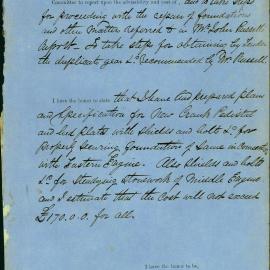 Committee to report upon the advisability and cost of, and to take steps
for proceeding with the repairs of foundations
and other Matter referred to in Mr John Russell
Report. To take steps for obtaining by tender
the duplicate gear &c recommended by Mr Russell.
I have the honor to state that I have prepared plan
and specification for New Crank Pedestal
and bed plates with shields and bolts &c for
properly securing foundation of same in connection
with Eastern Engine. Also shields and bolts
&c for steadying Stonework of Middle Engine
and I estimate that the cost will not exceed
£170.0.0. for all.
I have the honor to be,